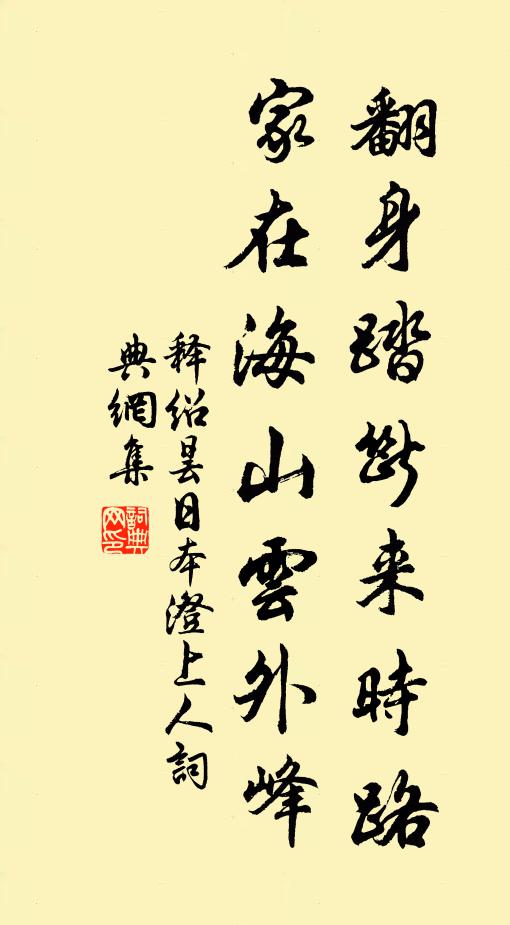 翻身踏斷来時路
家在海山雲外峰
释绍昙日本澄上人詞
典網集
詞典
网印